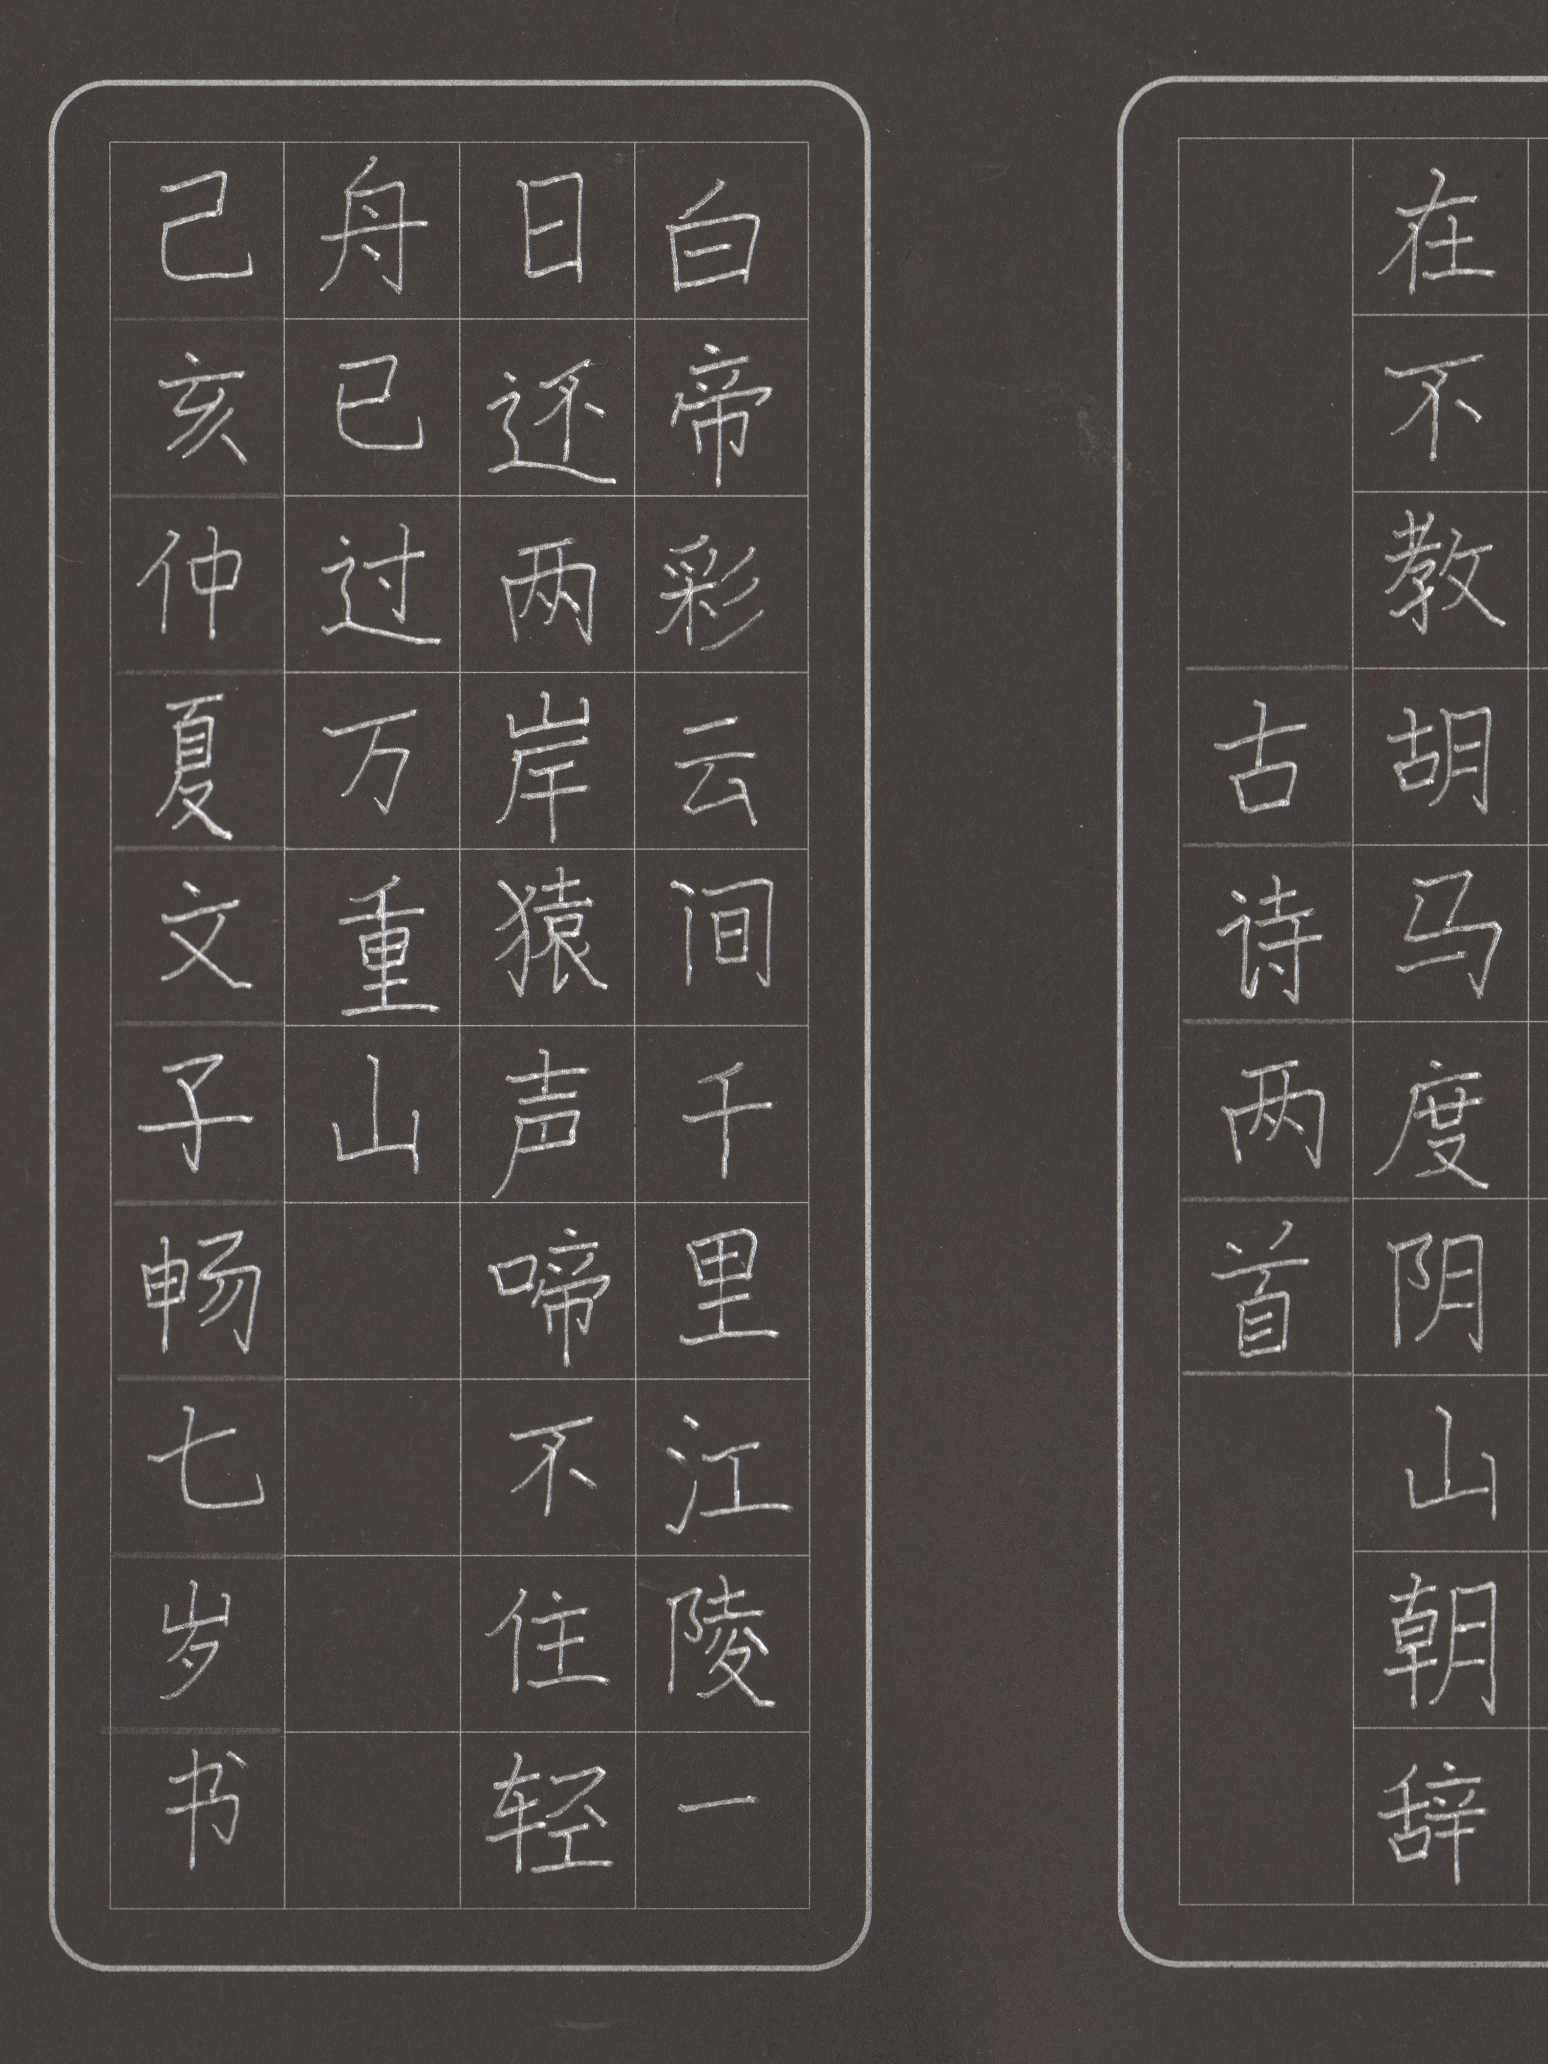 在不教胡马度阴山朝辞
古诗两首
白帝彩云间千里江陵一
日还两岸猿声啼不住轻
舟已过万重山
己亥仲夏文子畅七岁书